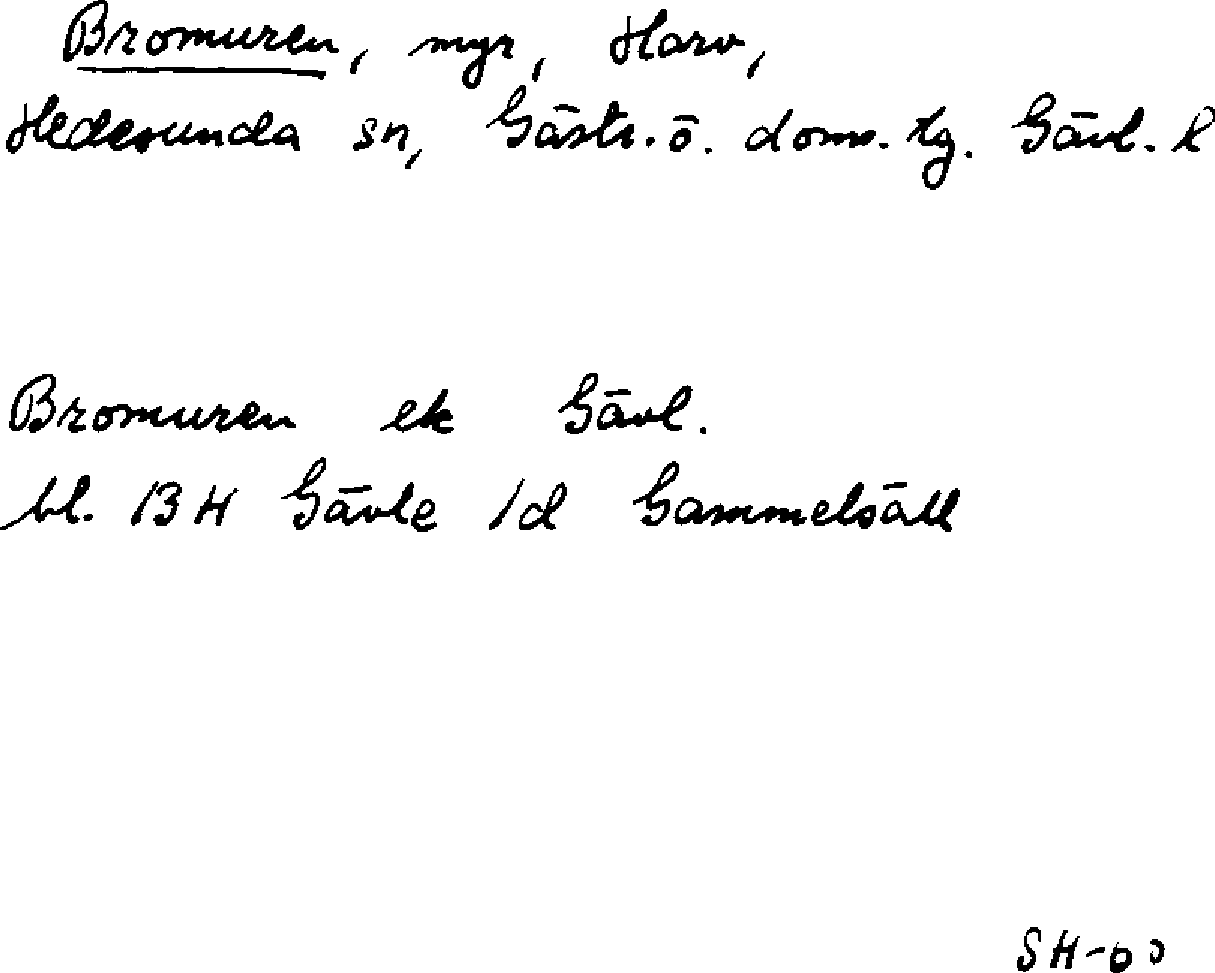 Bromuren, myr, Harv,
Hedesunda sn, Gästr. ö. doms. tg. Gävl. l
Bromuren ek Gävl.
bl. 13H Gävle 1d Gammelsäll
SH-00